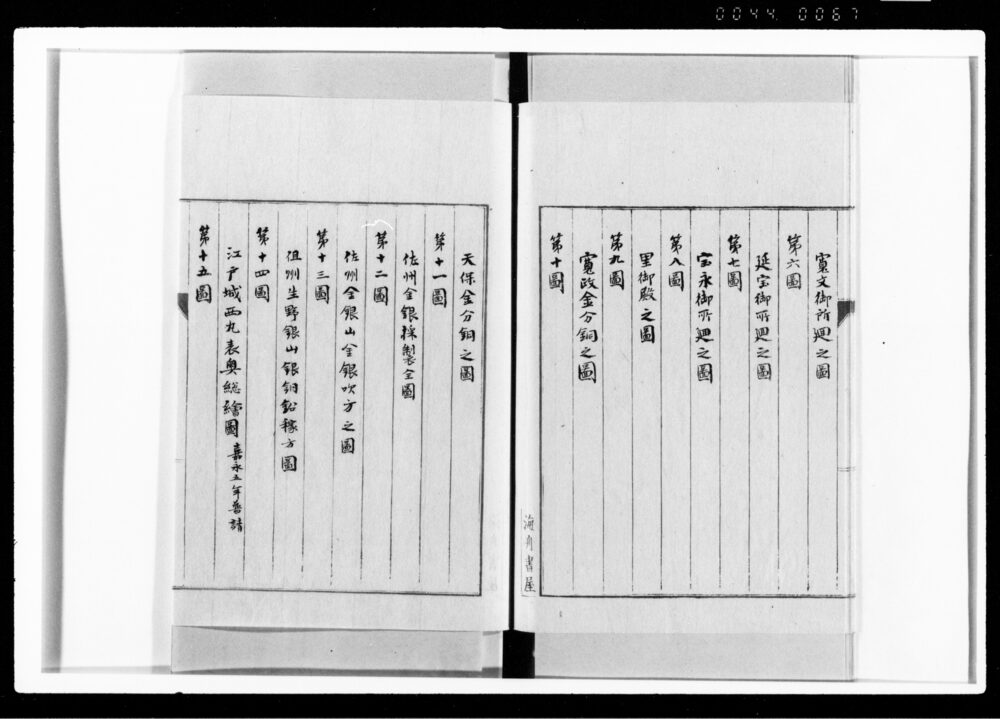 0044 0067
寛文御所廻之圖
第六圖
延宝御所廻之圖
第七圖
宝永御所廻之圖
第八圖
里御殿之圖
第九圖
寛政金分銅之圖
第十圖
海舟書屋
天保金分銅之圖
第十一圖
佐州金銀採製全圖
第十二圖
佐州金銀山金銀吹方之圖
第十三圖
但州生野銀山銀銅鉛稼方圖
第十四圖
江戸城西丸表奥総繪圖 嘉永五年普請
第十五圖